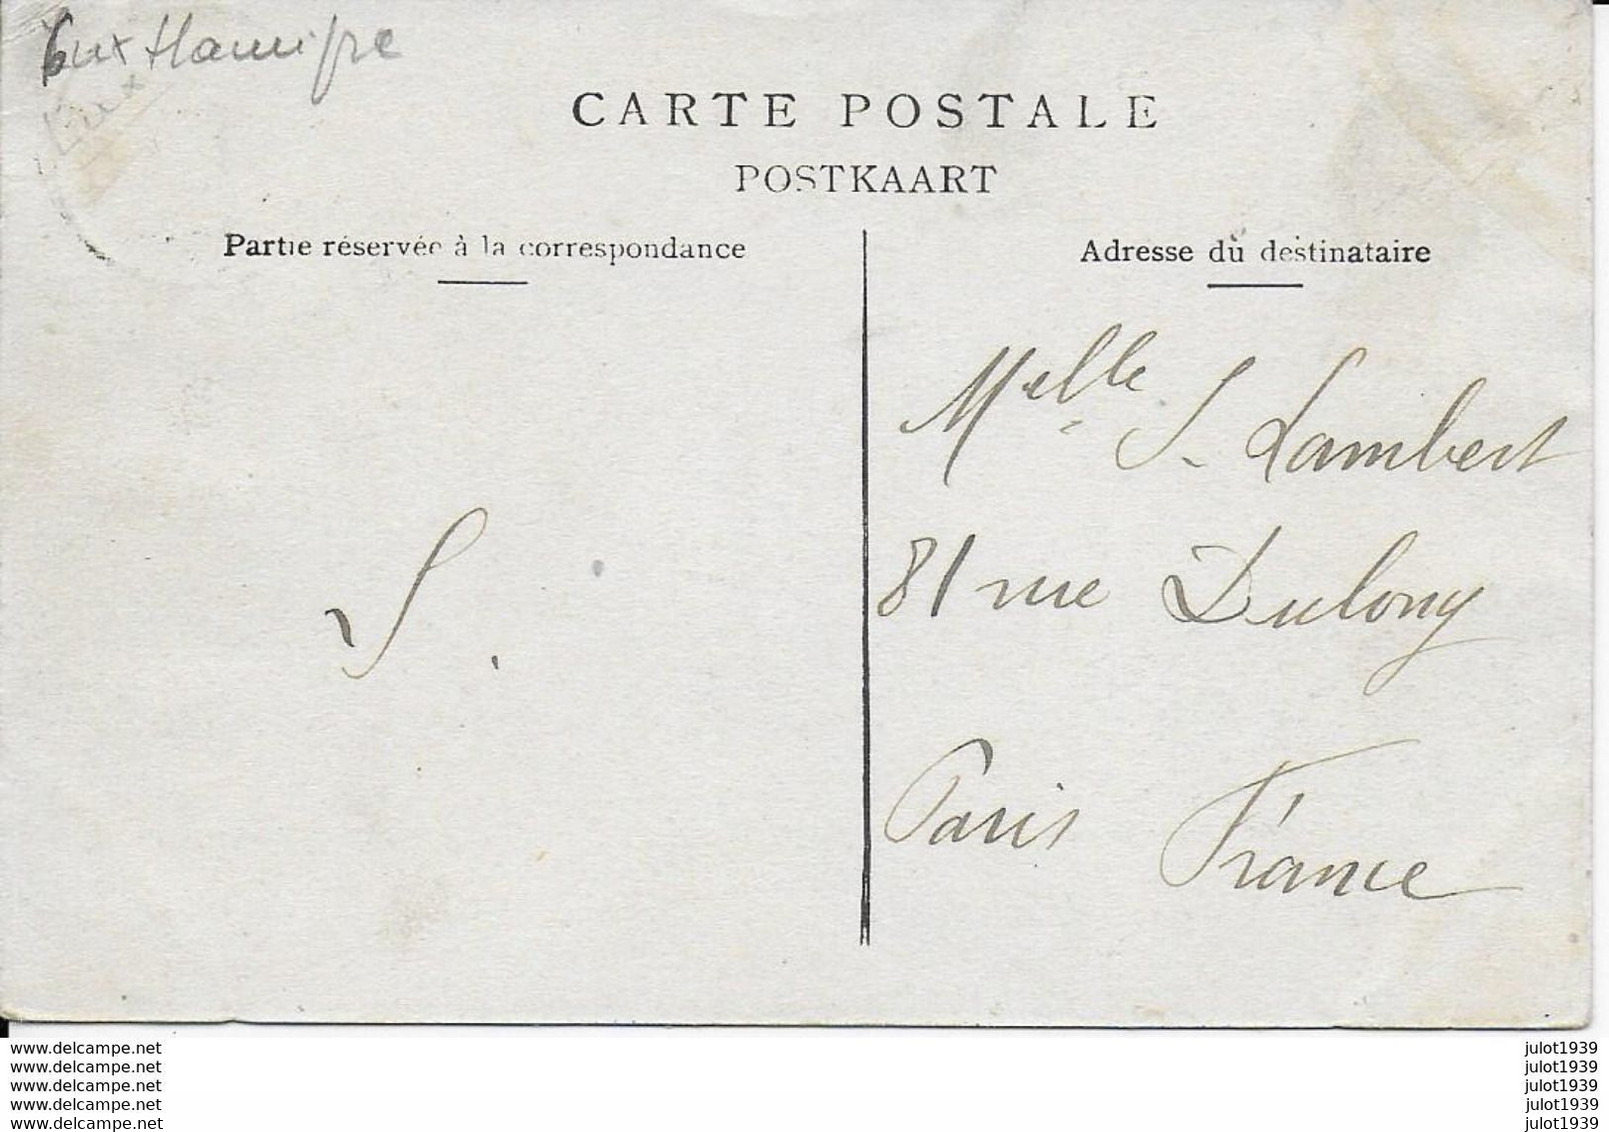 CARTE POSTALE
POSTKAART
Partie réservée à la correspondance
Adresse du destinataire
Melle S. Lambert
81 rue Dulong
Paris France
S.
www.delcampe.net
www.delcampe.net
www.delcampe.net
www.delcampe.net
www.delcampe.net
julot1939
julot1939
julot1939
julot1939
julot1939